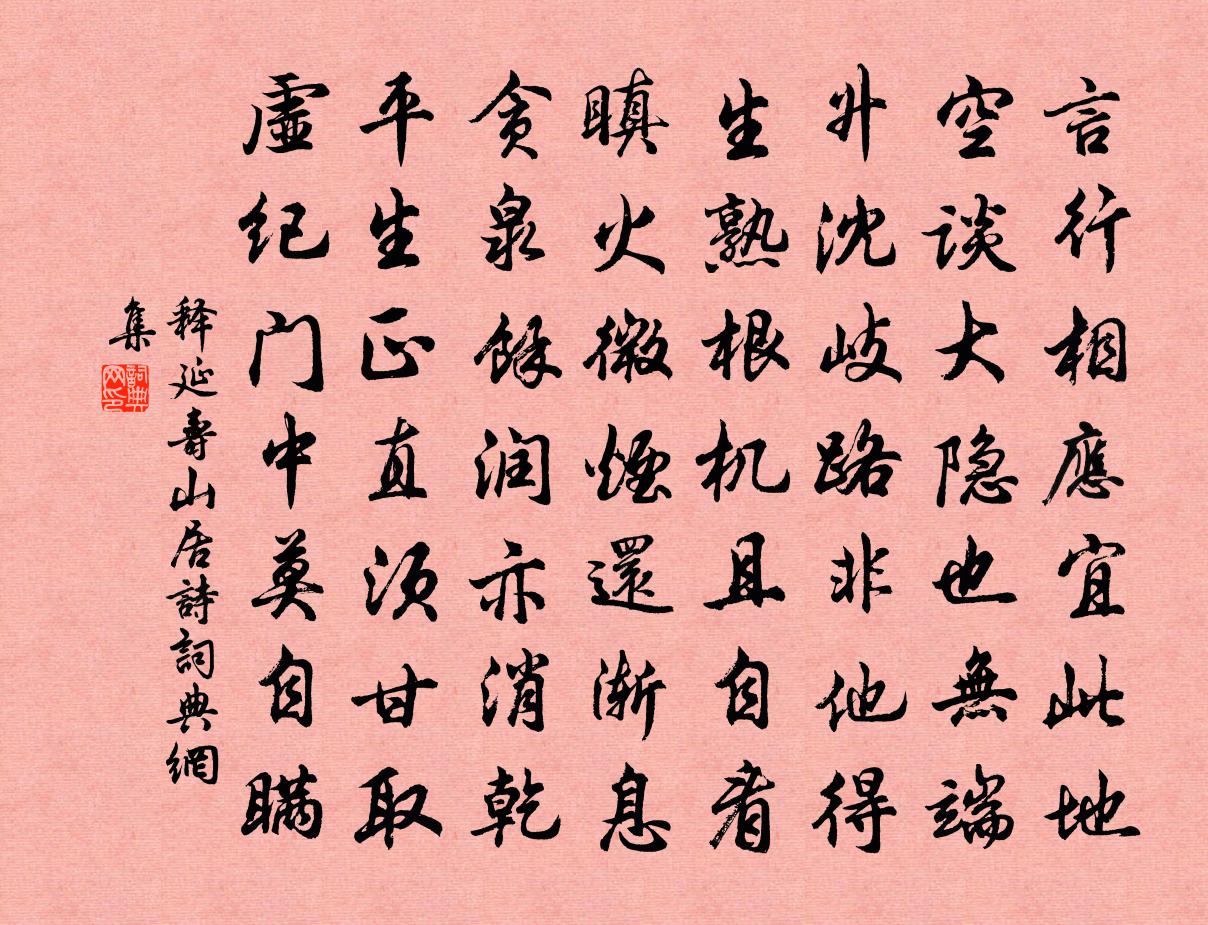 言行相應宜此地
空谈大隐也無端
升沈岐路非他得
生熟根机且自看
瞋火微煙還渐息
贪泉餘润亦消乾
平生正直须甘取
虚纪门中莫自瞒
释延壽山居詩詞典網
集
詞典
网印